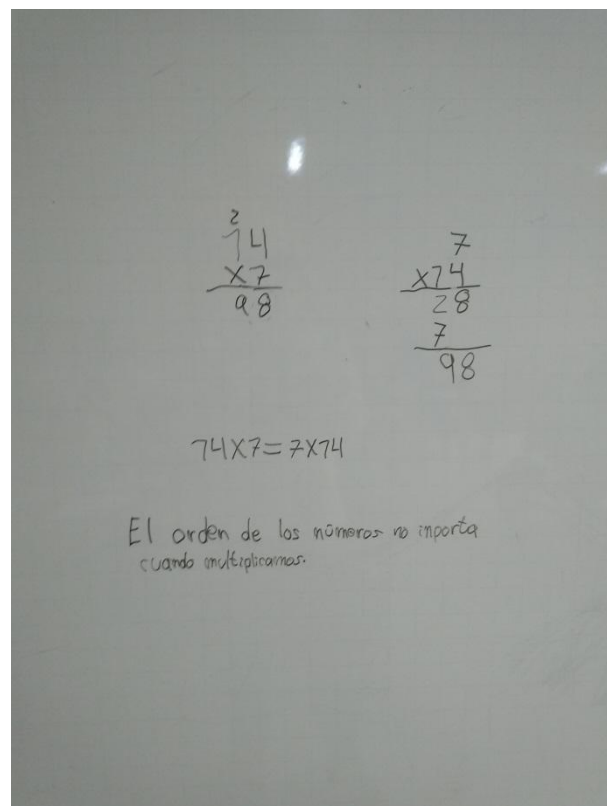 2
14
x7
98
7
x14
28
7
98
14x7=7x14
El orden de los números no inporta
cuando multiplicamos.